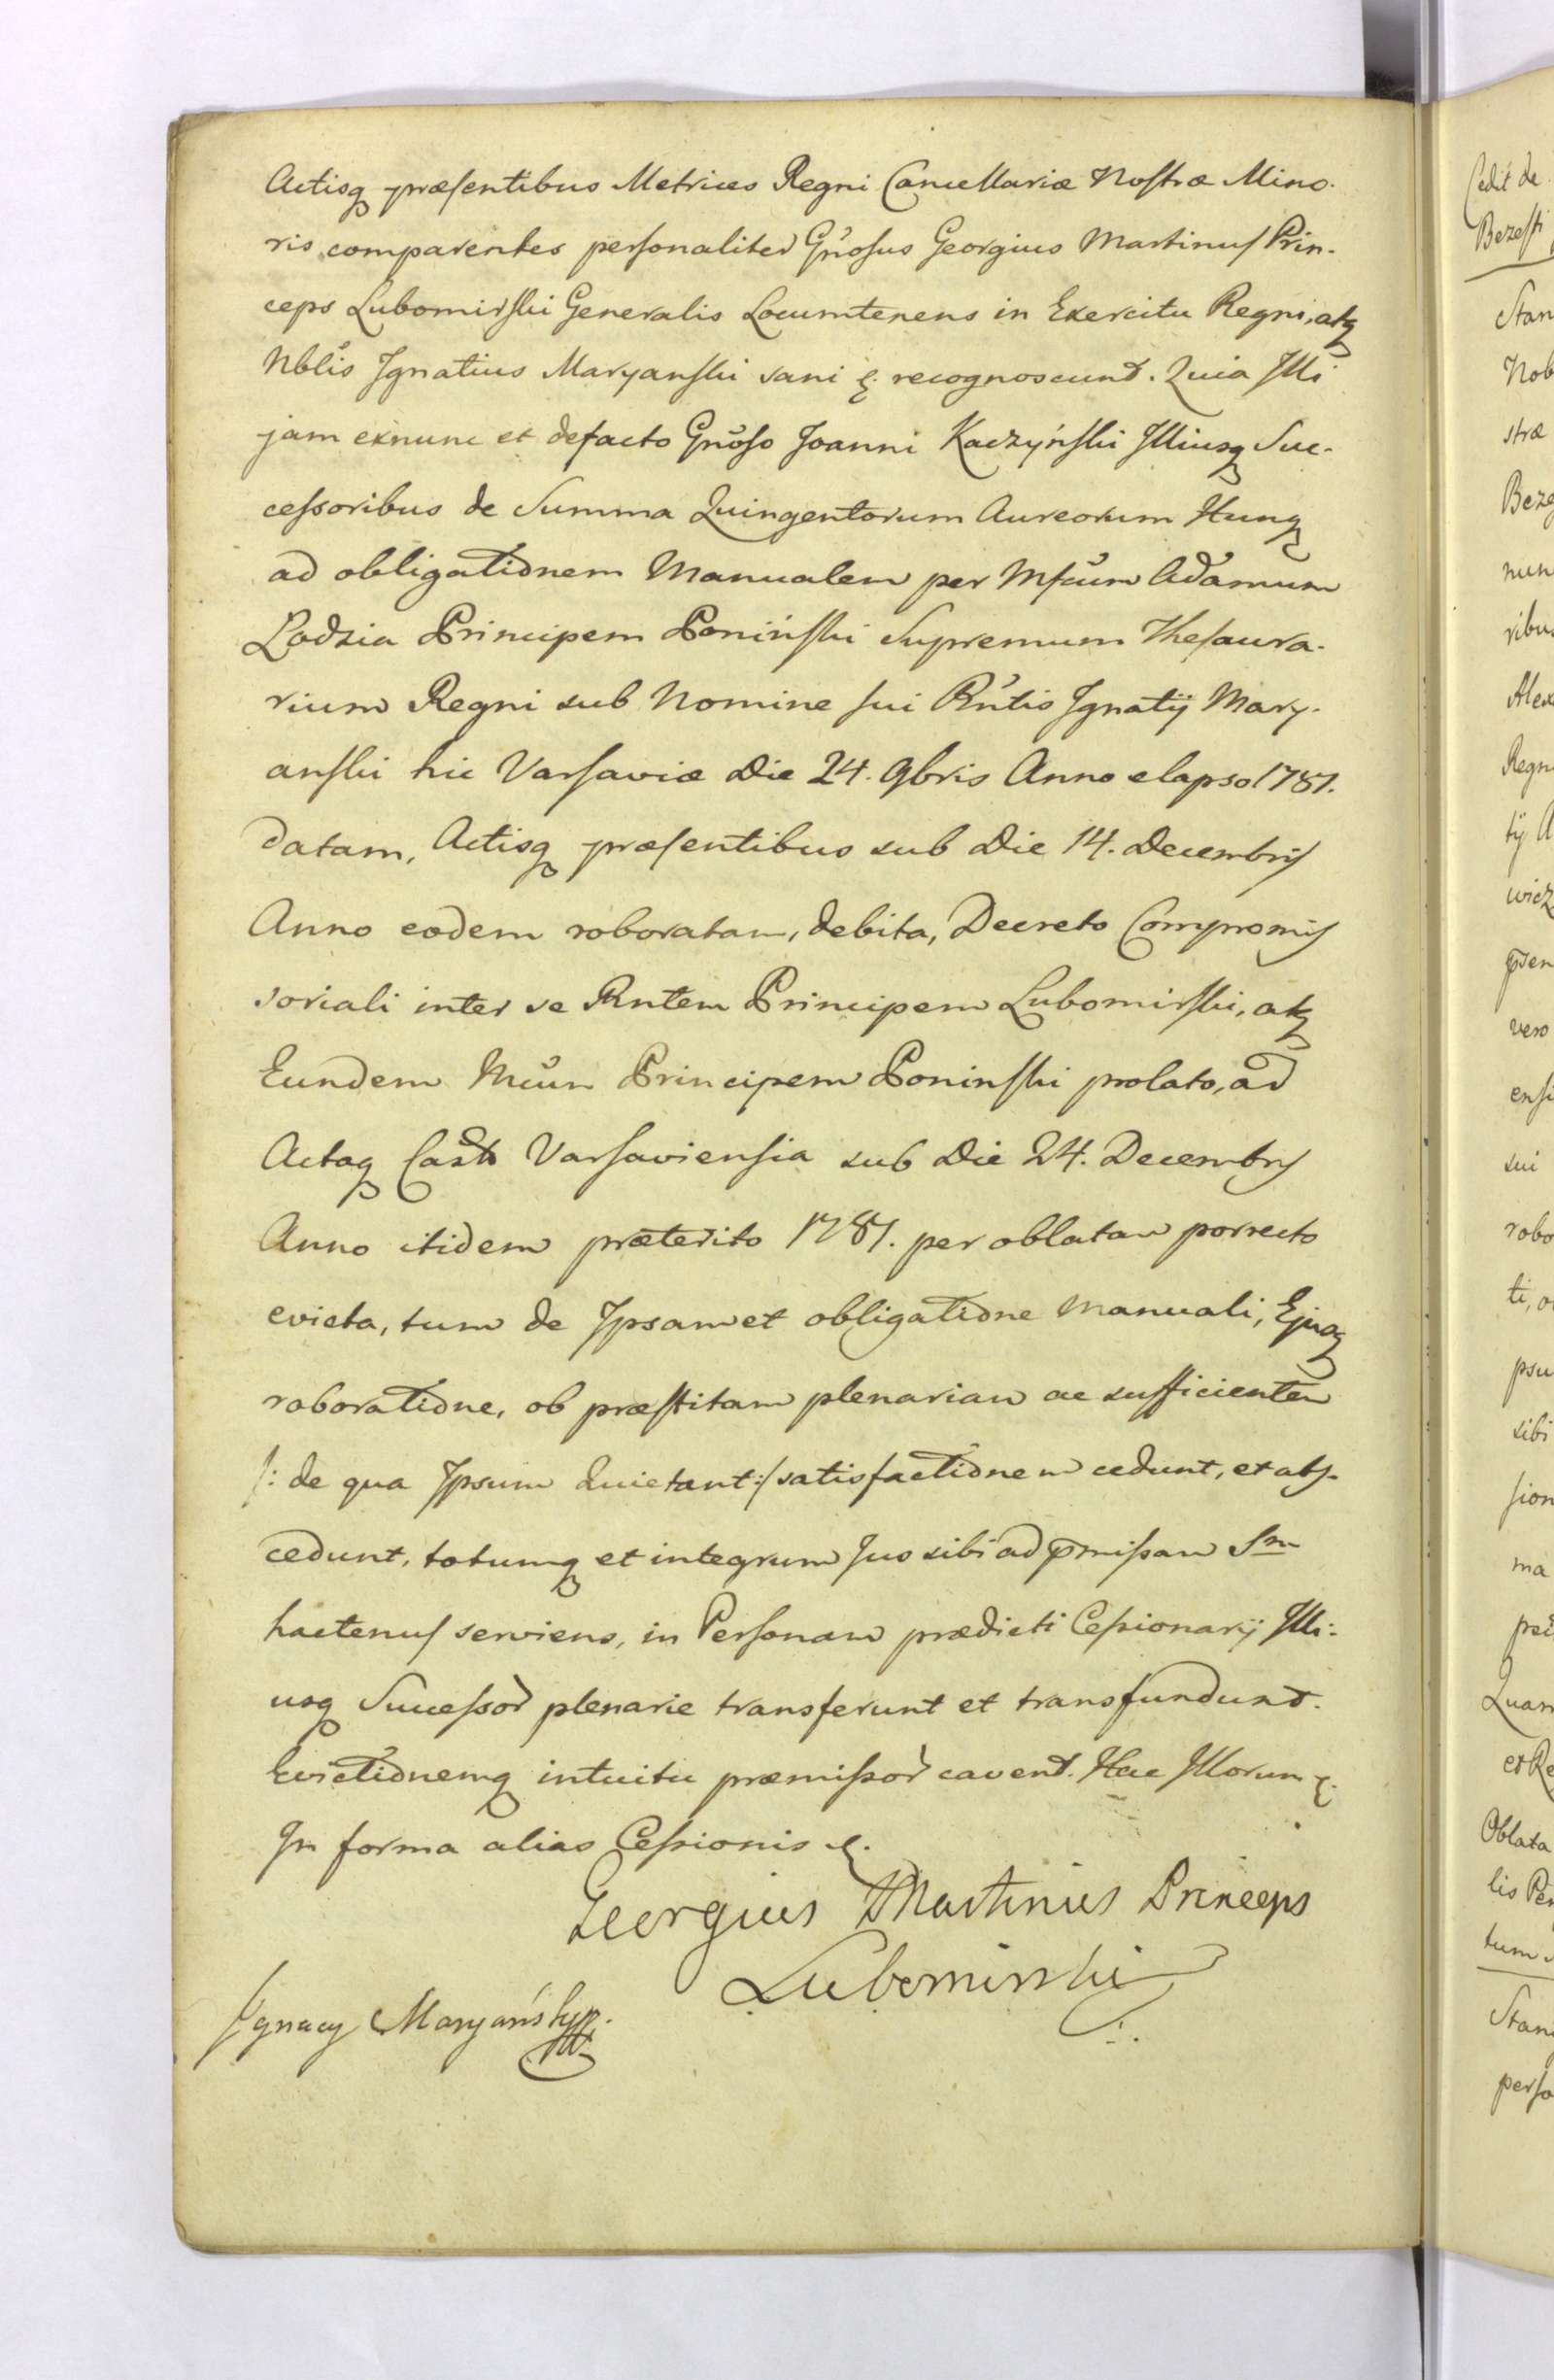 Actisq præsentibus Metrices Regni Cancellariæ Nostræ Mino-
ris comparentes personaliter Gñosus Georgius Martinus Prin-
ceps Lubomirski Generalis Locumtenens in Exercitu Regni, atq
Nblis Ignatius Maryanski sani &. recognoscunt. Quia Illi
jam exnunc et defacto Gñoso Joanni Kaczyński Illiusq Suc-
cessoribus de Summa Quingentorum Aureorum Hung
ad obligationem Manualem per Mfcum Adamum
Lodzia Principem Poniński Supremum Thesaura-
rium Regni sub Nomine sui Rñtis Ignatij Mary-
anski hic Varsaviæ Die 24. 9bris Anno elapso 1787.
datam, Actisq præsentibus sub Die 14. Decembris
Anno eodem roboratam, debita, Decreto Compromis
soriali inter se Rntem Principem Lubomirski, atq
Eundem Mcum Principem Poninski prolato, ad
Actaq Castr Varsaviensia sub Die 24. Decembris
Anno itidem præterito 1787. per oblatam porrecto
evicta, tum de Ipsamet obligatione Manuali, Ejusq
roboratione, ob præstitam plenariam ac sufficientem
/: de qua Ipsum Quietant :/ satisfactionem cedunt, et abs-
cedunt, totumq et integrum Jus sibi ad pmissam Sm
hactenus serviens, in Personam prædicti Cessionarij Illi-
usq Successor plenarie transferunt et transfundunt.
Evictionemq intuitu præmissor cavent. Hac Illorum &.
In forma alias Cessionis &.
Georgius Martinus Princeps
Lubomirski
Ignacy Maryański
Cedit de
Bezesti
Stan
Nob
stræ
Beze
nun
ribus
Alex
Regn
tij A
wicz
psen
vero
ensi
sui
robo
ti, o
psu
sibi
sion
ma
præ
Quam
et Re
Oblata
lis Per
tum
Stan
perso